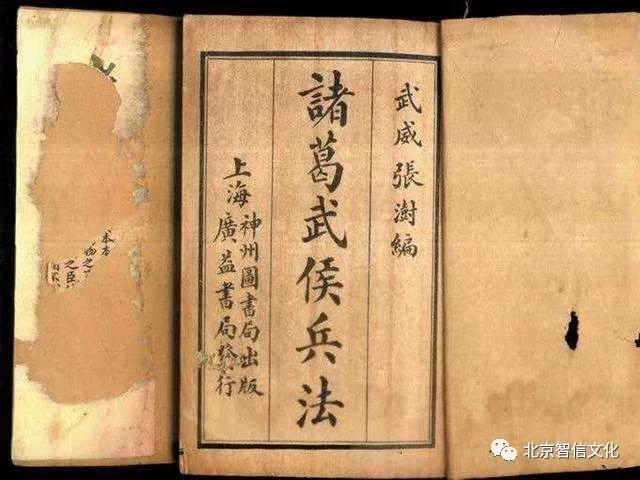 武威張澍編
諸葛武侯兵法
上海
神州圖書局出版
廣益書局發行
本本
之臣
北京智信文化